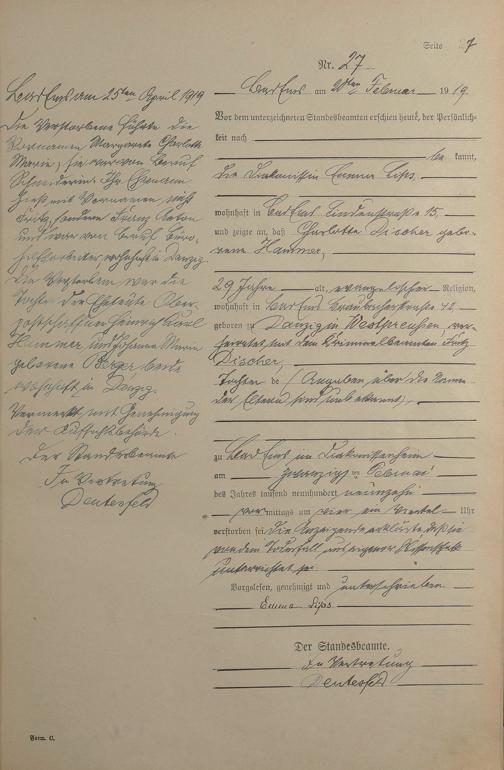 Seite 27
Nr. 27
Bad Ems am 20ten Februar 1919.
Vor dem unterzeichneten Standesbeamten erschien heute, der Persönlich-
keit nach
be kannt,
die Diakonissin Emma Lips,
wohnhaft in Bad Ems Lindenstraße 15,
und zeigte an, daß Charlotte Discher gebo-
rene Hammer,
29 Jahre alt, evangelischer Religion,
wohnhaft in Bad Ems 12,
geboren zu Danzig in Westpreußen, ver-
heiratet mit dem Kriminalbeamten Fritz
Discher,
Tochter de (Angaben über die Namen
der Eltern sind unbekannt),
zu Bad Ems im Diakonissenheim
am zwanzigsten Februar
des Jahres tausend neunhundert neunzehn
vormittags um vier ein viertel Uhr
verstorben sei. Die Anzeigende erklärte, daß sie
von dem Todesfall aus eigener Wissenschaft
unterrichtet sei
Vorgelesen, genehmigt und unterschrieben
Emma Lips.
Der Standesbeamte.
In Vertretung
Deutesfeld
Bad Ems am 25ten April 1919
Die Verstorbene führte die
Vornamen Margarete Charlotte
Marie, sie war von Beruf
Schneiderin. Ihr Ehemann
hieß mit Vornamen nicht
Fritz, sondern Franz Anton
und war von Beruf Büro-
hilfsarbeiter wohnhaft in Danzig.
Die Verstorbene war die
Tochter der Eheleute Ober-
postschaffner Heinrich Karl
Hammer und Johanna Maria
geborene Berger beide
wohnhaft in Danzig.
Vermerkt mit Genehmigung
der Aufsichtsbehörde.
Der Standesbeamte
In Vertretung
Deutesfeld
Form. C.